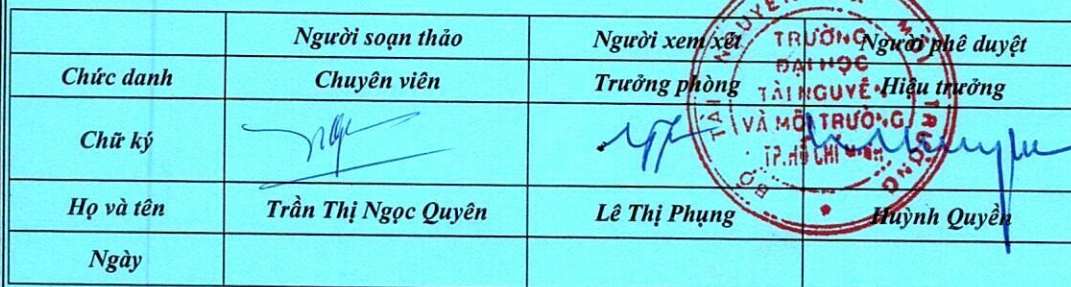 Người soạn thảo Người xem xét Người phê duyệt
Chức danh Chuyên viên Trưởng phòng Hiệu trưởng
Chữ ký
Họ và tên Trần Thị Ngọc Quyên Lê Thị Phụng Huỳnh Quyền
Ngày
TRƯỜNG
ĐẠI HỌC
TÀI NGUYÊN
VÀ MÔI TRƯỜNG
TP.HỒ CHÍ MINH
BỘ TÀI NGUYÊN VÀ MÔI TRƯỜNG